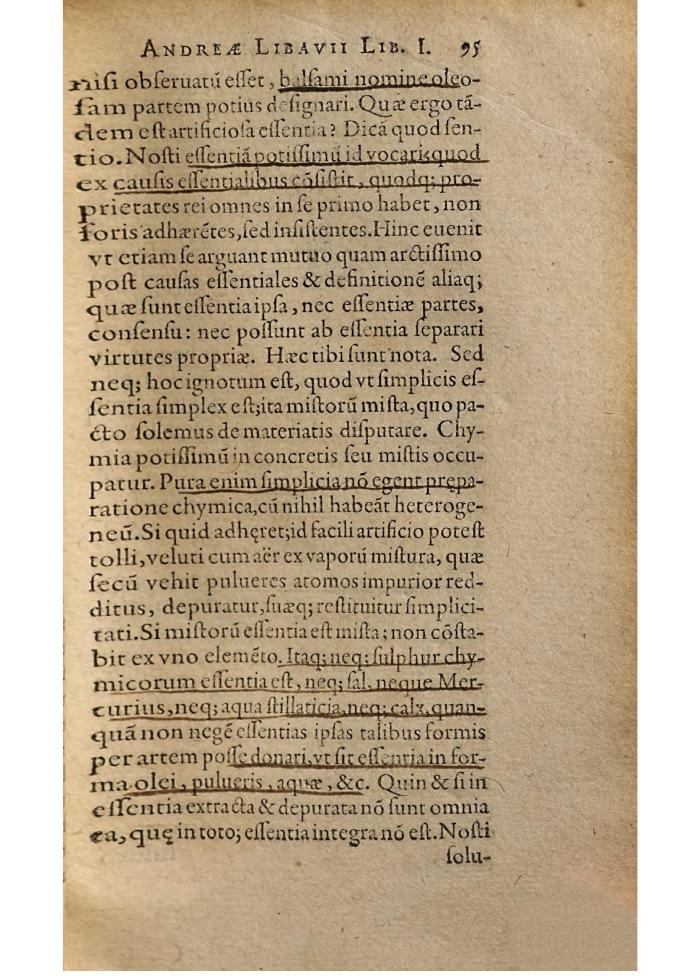 ANDREÆ LIBAVII LIB. I. 95
niſi obſeruatũ eſſet, balſami nomine oleo-
ſam partem potius deſignari. Quæ ergo tã-
dem eſt artificioſa eſſentia? Dicã quod ſen-
tio. Noſti eſſentiã potiſſimũ id vocari, quod
ex cauſis eſſentialibus cõſiſtit, quodq; pro-
prietates rei omnes in ſe primo habet, non
foris adhærẽtes, ſed inſiſtentes. Hinc euenit
vt etiam ſe arguant mutuo quam arctiſſimo
poſt cauſas eſſentiales & definitionẽ aliaq;
quæ ſunt eſſentia ipſa, nec eſſentiæ partes,
conſenſu: nec poſſunt ab eſſentia ſeparari
virtutes propriæ. Hæc tibi ſunt nota. Sed
neq; hoc ignotum eſt, quod vt ſimplicis eſ-
ſentia ſimplex eſt; ita miſtorũ miſta, quo pa-
cto ſolemus de materiatis diſputare. Chy-
mia potiſſimũ in concretis ſeu miſtis occu-
patur. Pura enim ſimplicia nõ egent prępa-
ratione chymica, cũ nihil habeãt heteroge-
neũ. Si quid adhęret; id facili artificio poteſt
tolli, veluti cum aër ex vaporũ miſtura, quæ
ſecũ vehit pulueres atomos impurior red-
ditus, depuratur, ſuæq; reſtituitur ſimplici-
tati. Si miſtorũ eſſentia eſt miſta; non cõſta-
bit ex vno elemẽto. Itaq; neq; ſulphur chy-
micorum eſſentia eſt, neq; ſal, neque Mer-
curius, neq; aqua ſtillaticia, neq; calx, quan-
quã non negẽ eſſentias ipſas talibus formis
per artem poſſe donari, vt ſit eſſentia in for-
ma olei, pulueris, aquæ, &c. Quin & ſi in
eſſentia extracta & depurata nõ ſunt omnia
ea, quę in toto; eſſentia integra nõ eſt. Noſti
ſolu-